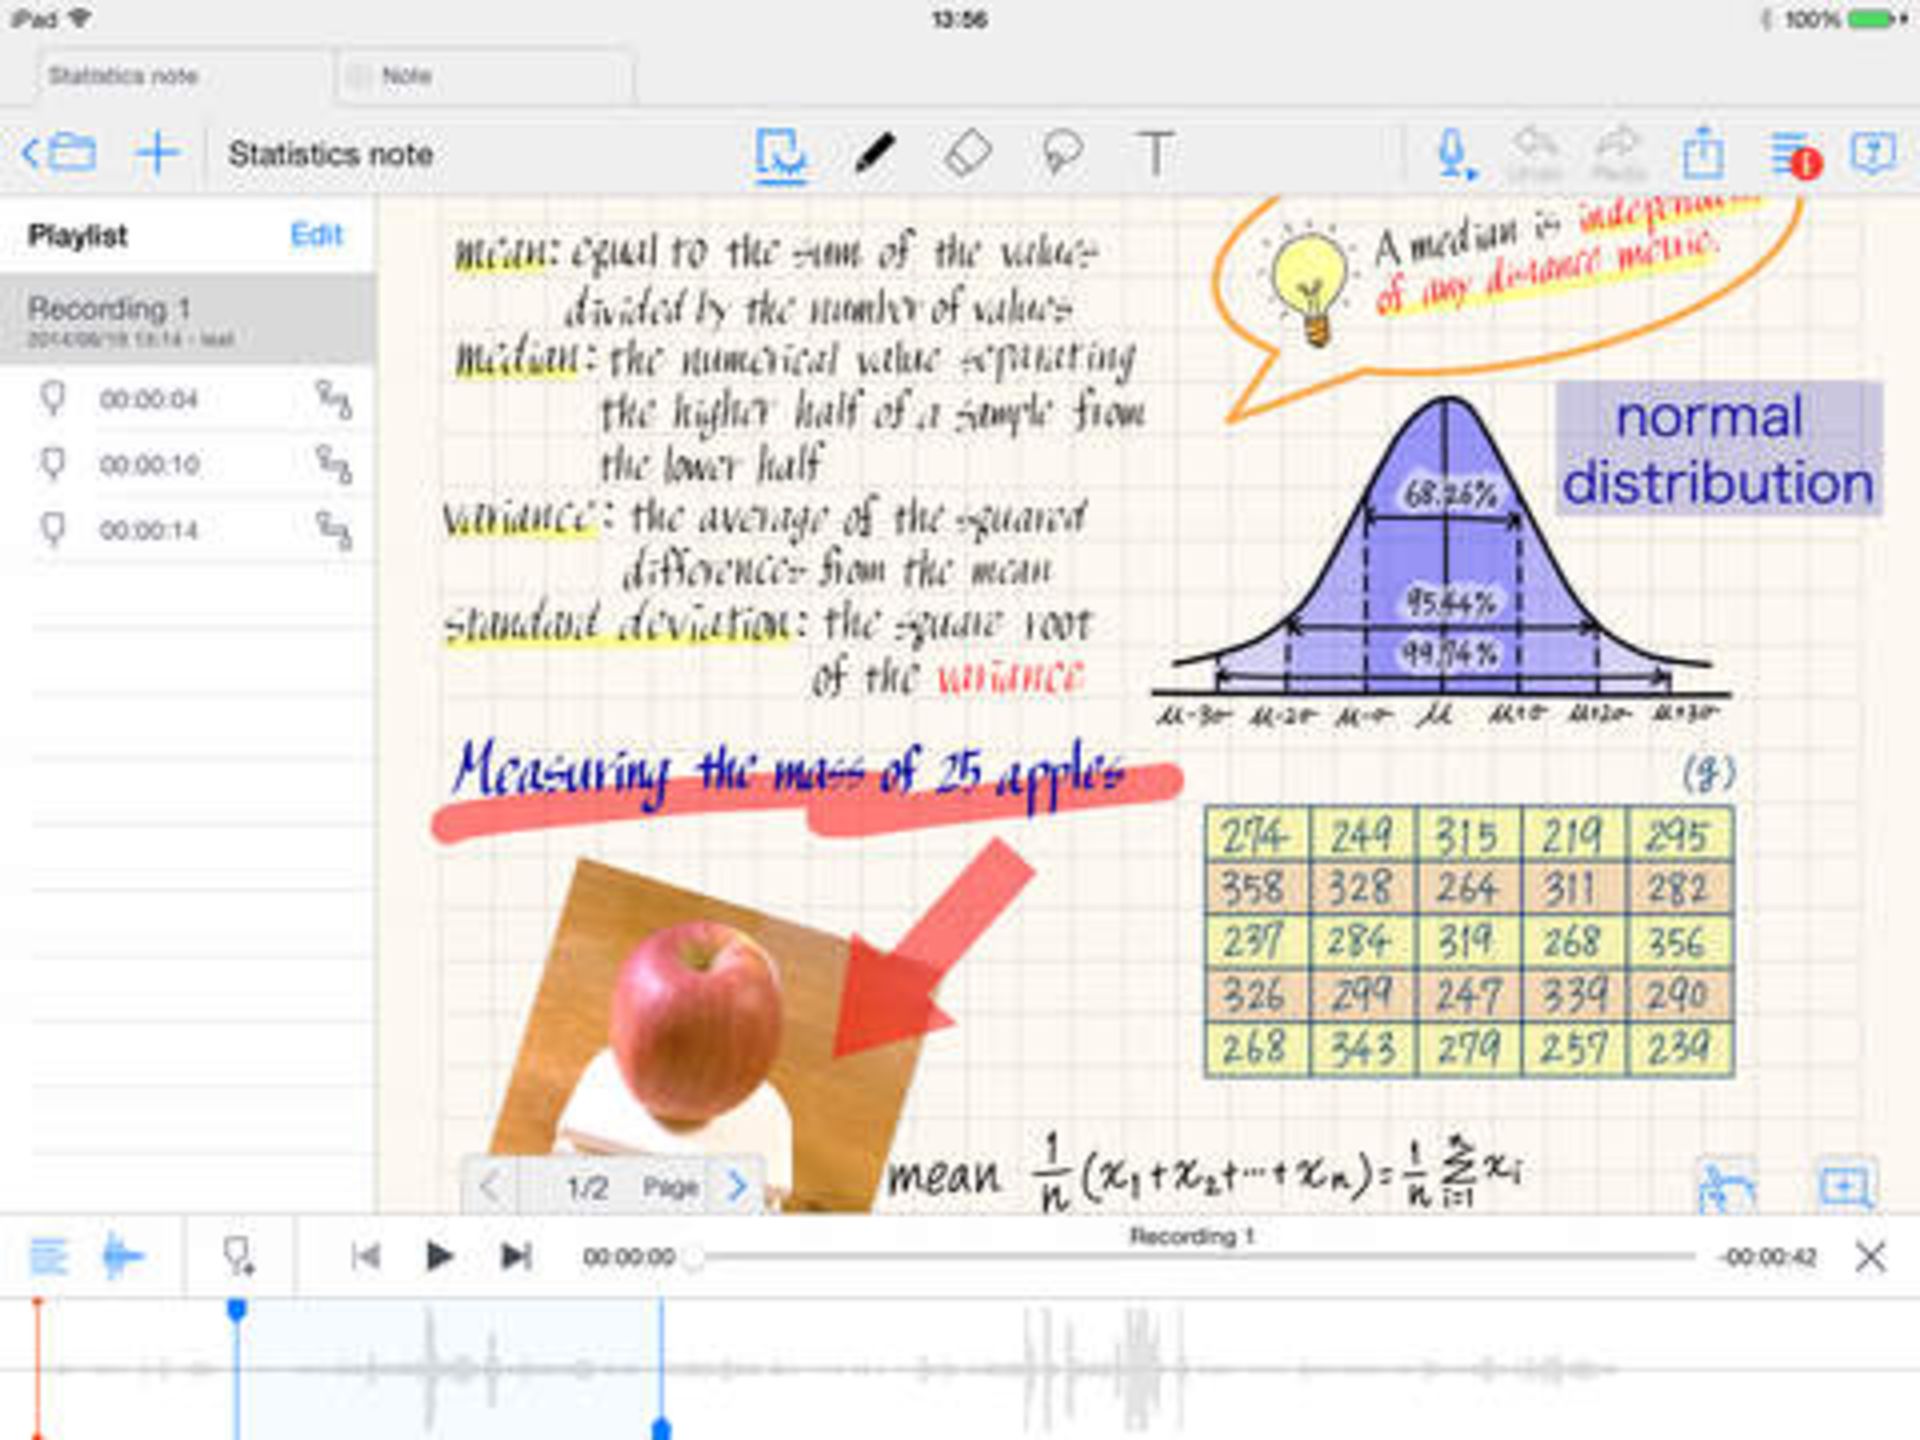 iPad 13:56 100%
Statistics note Note
Statistics note T
Undo Redo
Playlist Edit
Recording 1
00:00:04
00:00:10
00:00:14
mean: equal to the sum of the values
divided by the number of values
median: the numerical value separating
the higher half of a sample from
the lower half
variance: the average of the squared
differences from the mean
standard deviation: the square root
of the variance
A median is independent
of any distance metric.
normal
distribution
68.26%
95.44%
99.74%
μ-3σ μ-2σ μ-σ μ μ+σ μ+2σ μ+3σ
Measuring the mass of 25 apples
(g)
274 249 315 219 295
358 328 264 311 282
237 284 319 268 356
326 299 247 339 290
268 343 279 257 239
mean 1/n (x₁+x₂+···+xₙ)=1/n Σ i=1 n xᵢ
1/2 Page
Recording 1
00:00:00 -00:00:42